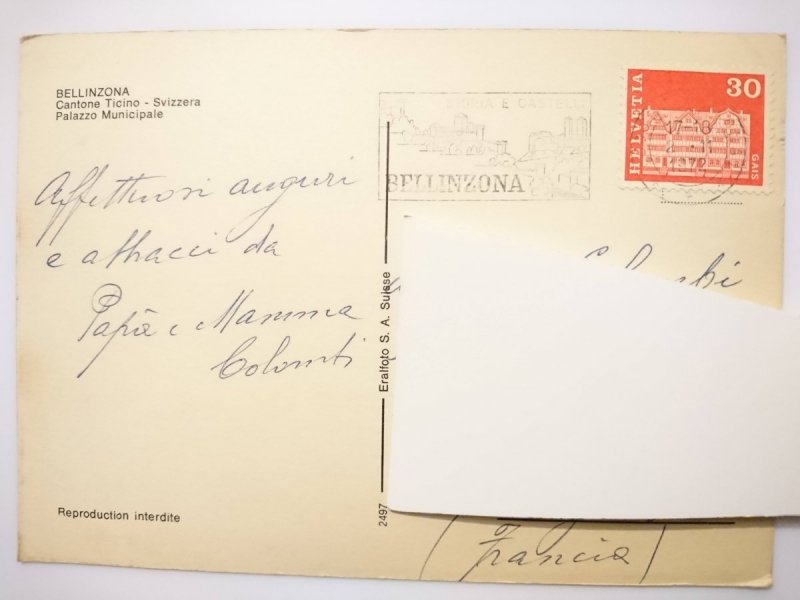 BELLINZONA
Cantone Ticino - Svizzera
Palazzo Municipale
STORIA E CASTELLI
BELLINZONA
HELVETIA
30
GAIS
17.-8
1972
Affettuosi auguri
e abbracci da
Papà e Mamma
Eralfoto S. A. Suisse
2497
Reproduction interdite
(Francia)